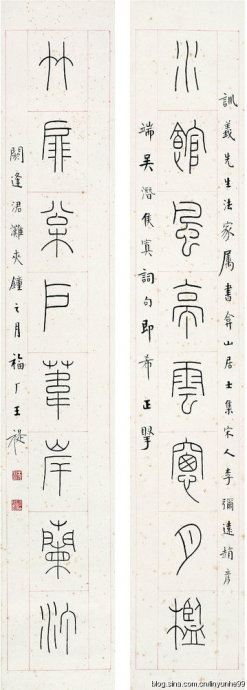 訓義先生法家属書弇山居士集宋人李彌遠趙彥
水館風亭雲窗月檻
端吳潛侯寘詞句即希正
竹扉枀戶葦岸蘭汀
閼逢涒灘夾鐘之月福厂王禔
blog.sina.com.cn/linyunhe99